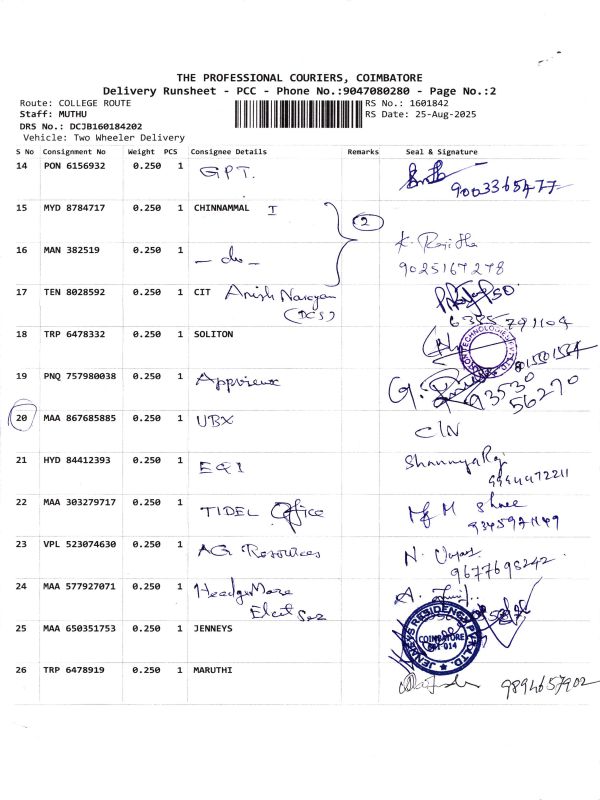 THE PROFESSIONAL COURIERS, COIMBATORE
Delivery Runsheet - PCC - Phone No.:9047080280 - Page No.:2
Route: COLLEGE ROUTE RS No.: 1601842
Staff: MUTHU RS Date: 25-Aug-2025
DRS No.: DCJB160184202
Vehicle: Two Wheeler Delivery
S No Consignment No Weight PCS Consignee Details Remarks Seal & Signature
14 PON 6156932 0.250 1 GPT.
9003365477
15 MYD 8784717 0.250 1 CHINNAMMAL I 2
16 MAN 382519 0.250 1 - do -
9025167278
17 TEN 8028592 0.250 1 CIT Anish Narayan
(DCS)
18 TRP 6478332 0.250 1 SOLITON
19 PNQ 757980038 0.250 1 Appviewx G.
93530
56270
20 MAA 867685885 0.250 1 UBX C/N
21 HYD 84412393 0.250 1 EQI
22 MAA 303279717 0.250 1 TIDEL Office
23 VPL 523074630 0.250 1 AG Resources N.
9677698242
24 MAA 577927071 0.250 1 A.
25 MAA 650351753 0.250 1 JENNEYS JENNEYS RESIDENCY PVT. LTD. COIMBATORE 641 014
26 TRP 6478919 0.250 1 MARUTHI 9894657902